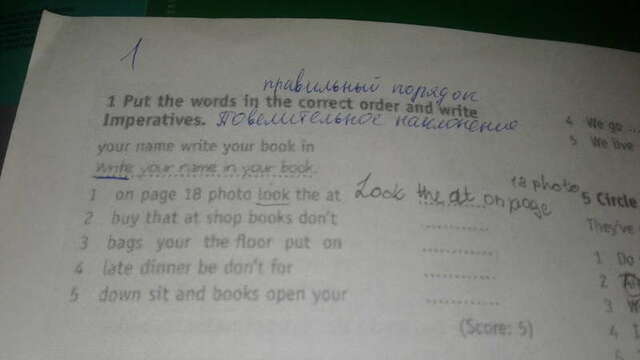 1
правильный порядок
1 Put the words in the correct order and write
Imperatives. Повелительное наклонение
your name write your book in
Write your name in your book.
1 on page 18 photo look the at Look the at on page 18 photo
2 buy that at shop books don't
3 bags your the floor put on
4 late dinner be don't for
5 down sit and books open your
(Score: 5)
4 We go ...
5 We live
5 Circle
They've
1 Do
2
3
4